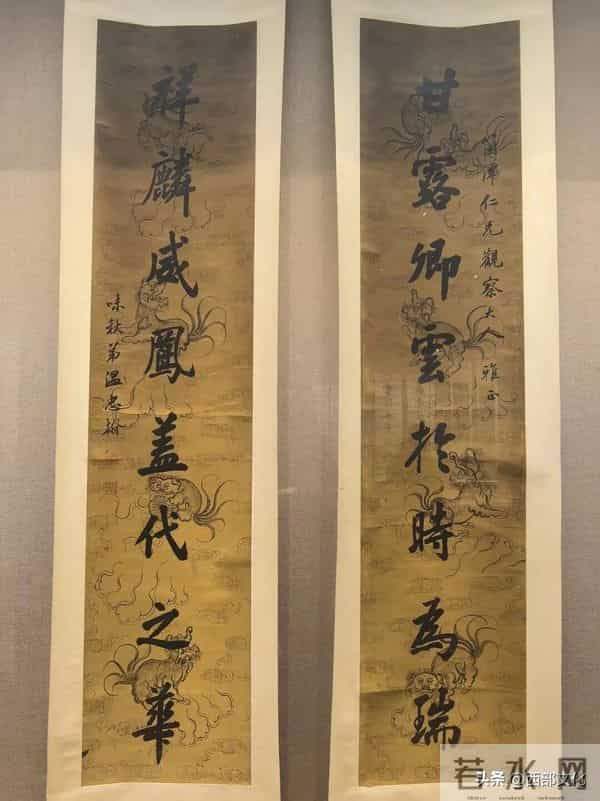 甘露卿雲於時為瑞
仁兄觀察大人 雅正
祥麟威鳳蓋代之華
味秋弟溫忠翰
若水网
头条 @西部文化